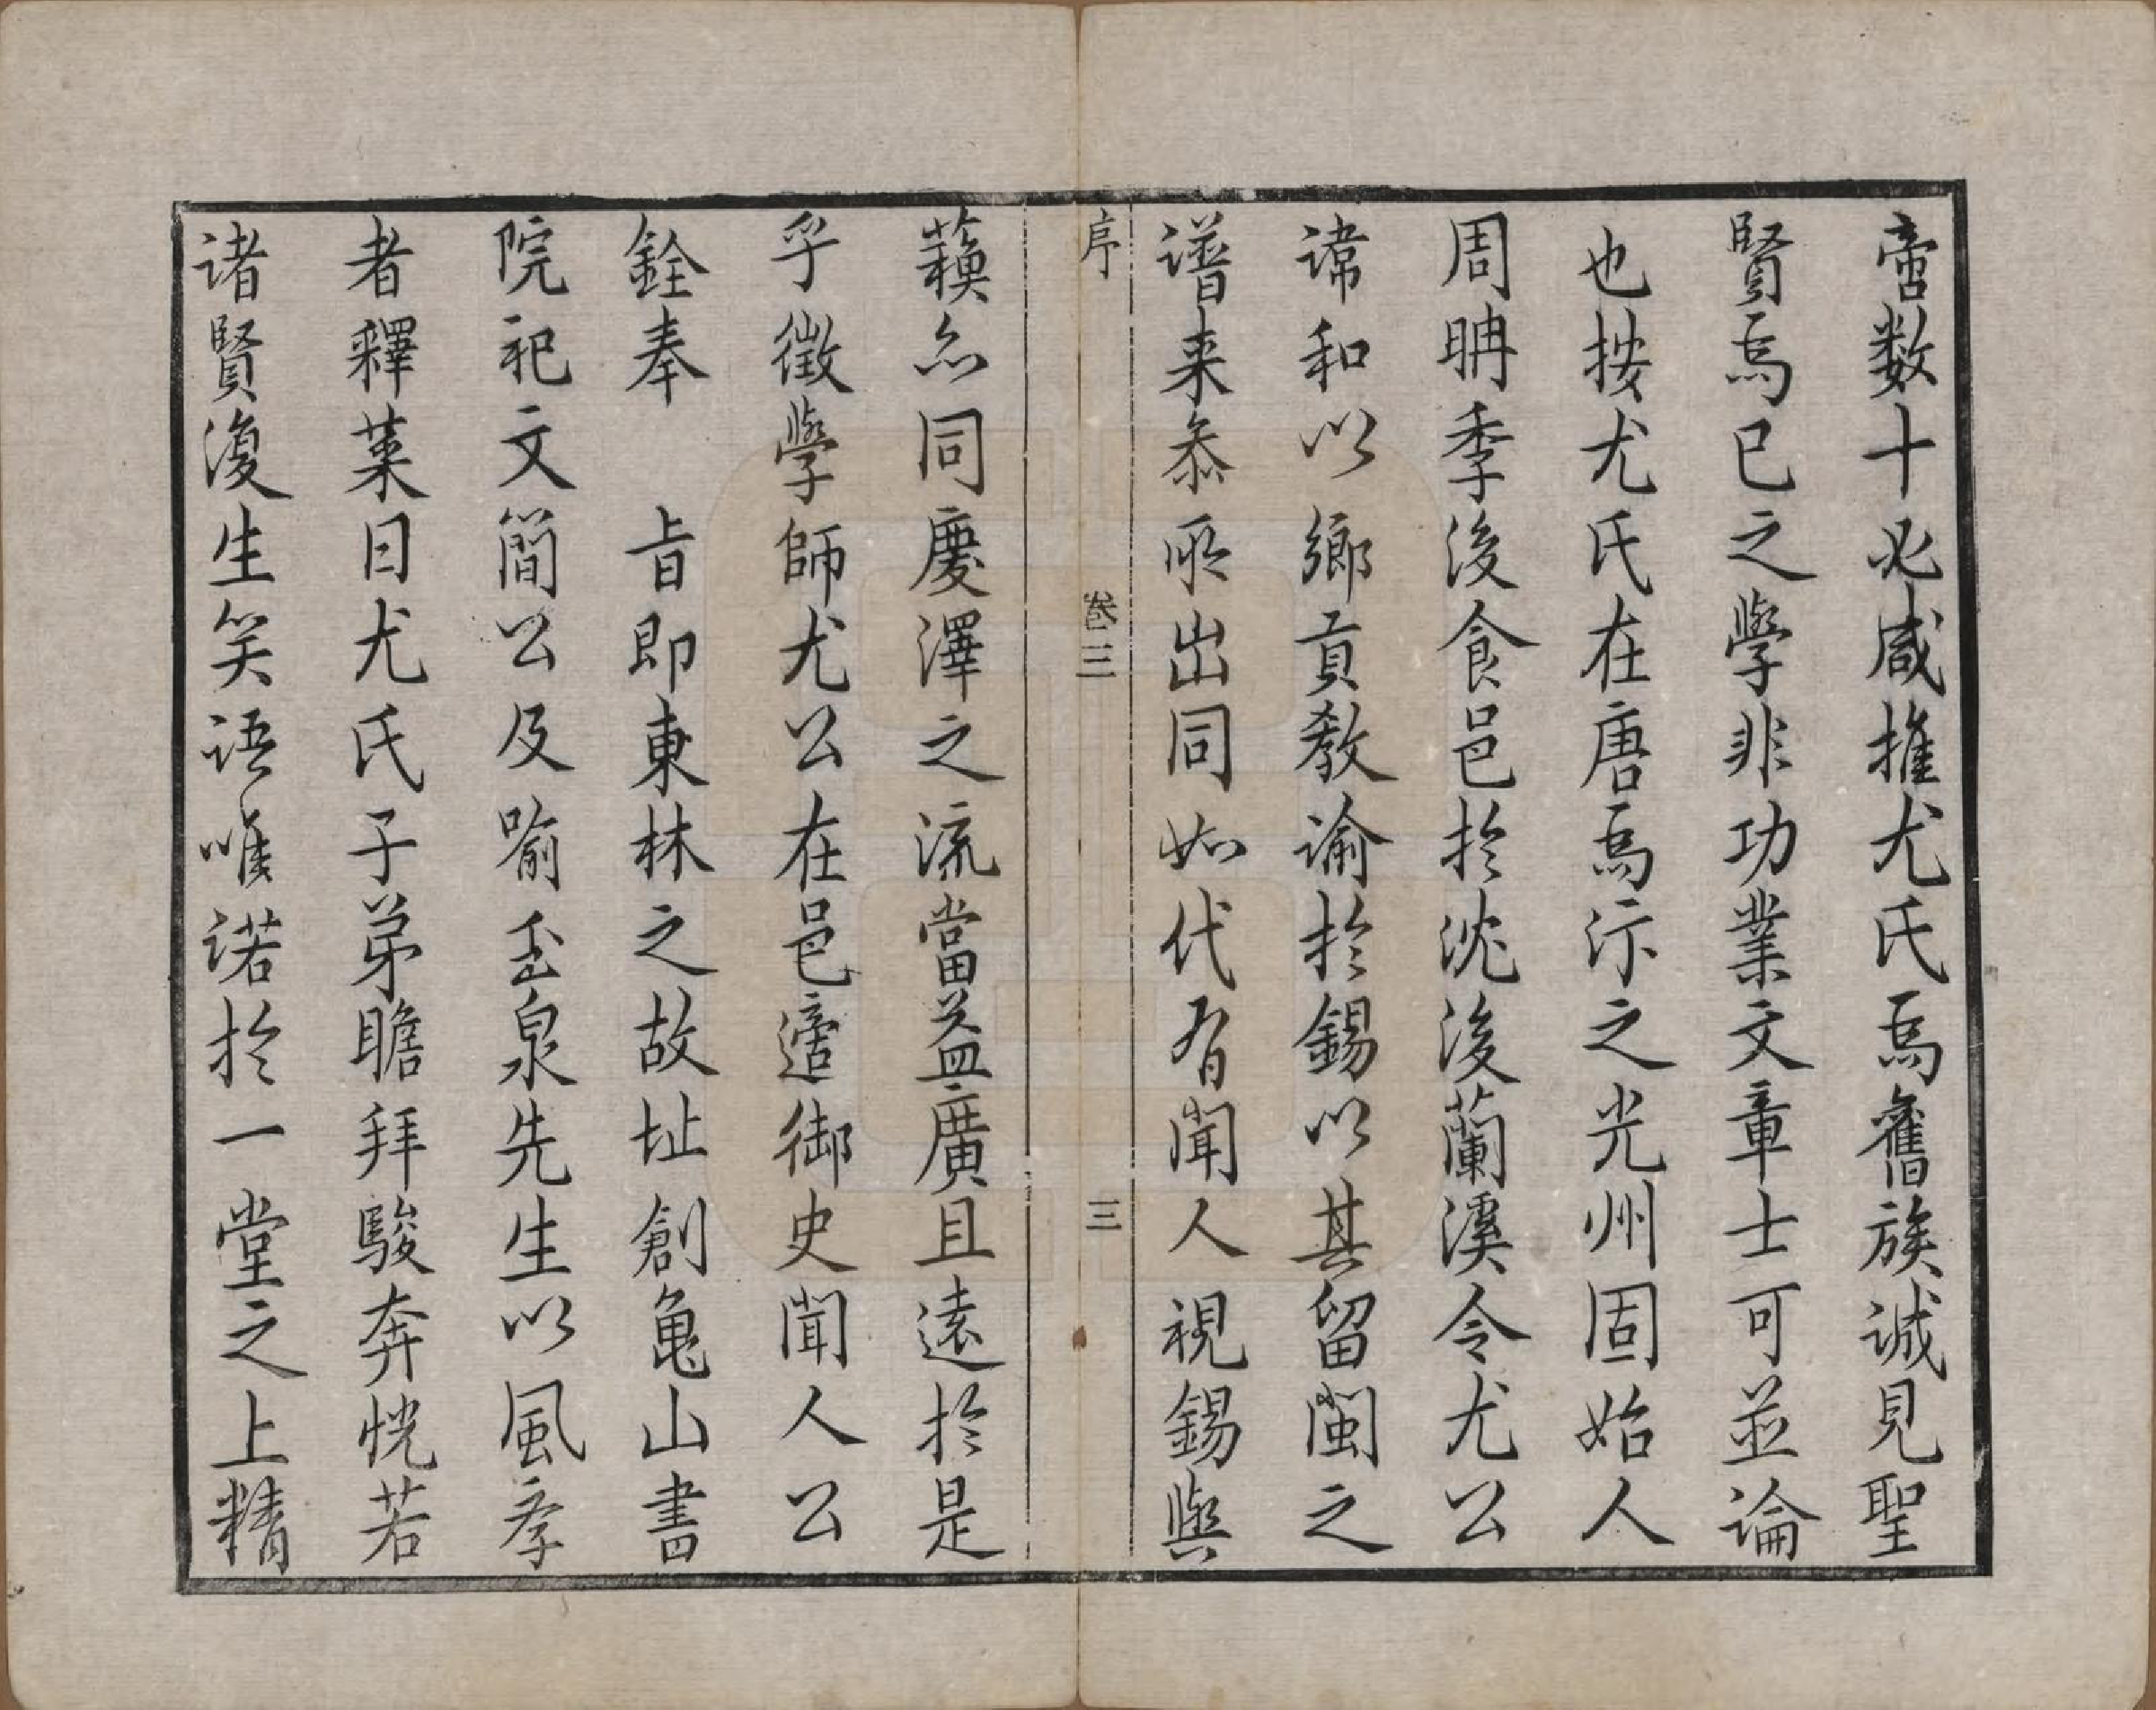 啻数十必咸推尤氏為舊族誠見聖
賢為已之學非功業文章士可並論
也按尤氏在唐為汴之光州固始人
周聃季後食邑於沈後蘭溪令尤公
諱和以鄉貢教諭於錫以其留閩之
譜来叅所出同如代有聞人視錫與
蘓尓同慶澤之流當益廣且遠於是
乎徵學師尤公在邑適御史聞人公
銓奉　旨即東林之故址創龜山書
院祀文簡公及喻玉泉先生以風孝
者釋菜日尤氏子弟瞻拜駿奔恍若
諸賢復生笑语唯諾於一堂之上精
序
卷三
三